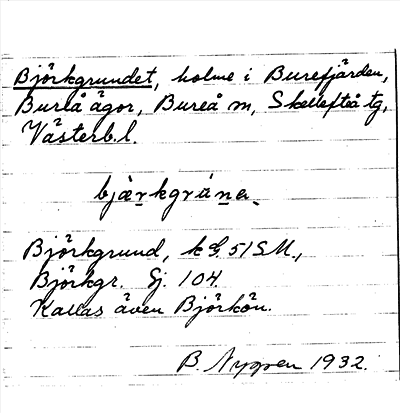 Björkgrundet, holme i Burefjärden,
Bureå ägor, Bureå sn, Skellefteå tg,
Västerb. l.
bjær̲kgrùn̲en̲
Björkgrund, k G. 51 SM.,
Björkgr. Sj. 104.
Kallas även Björkön.
B. Nygren 1932.